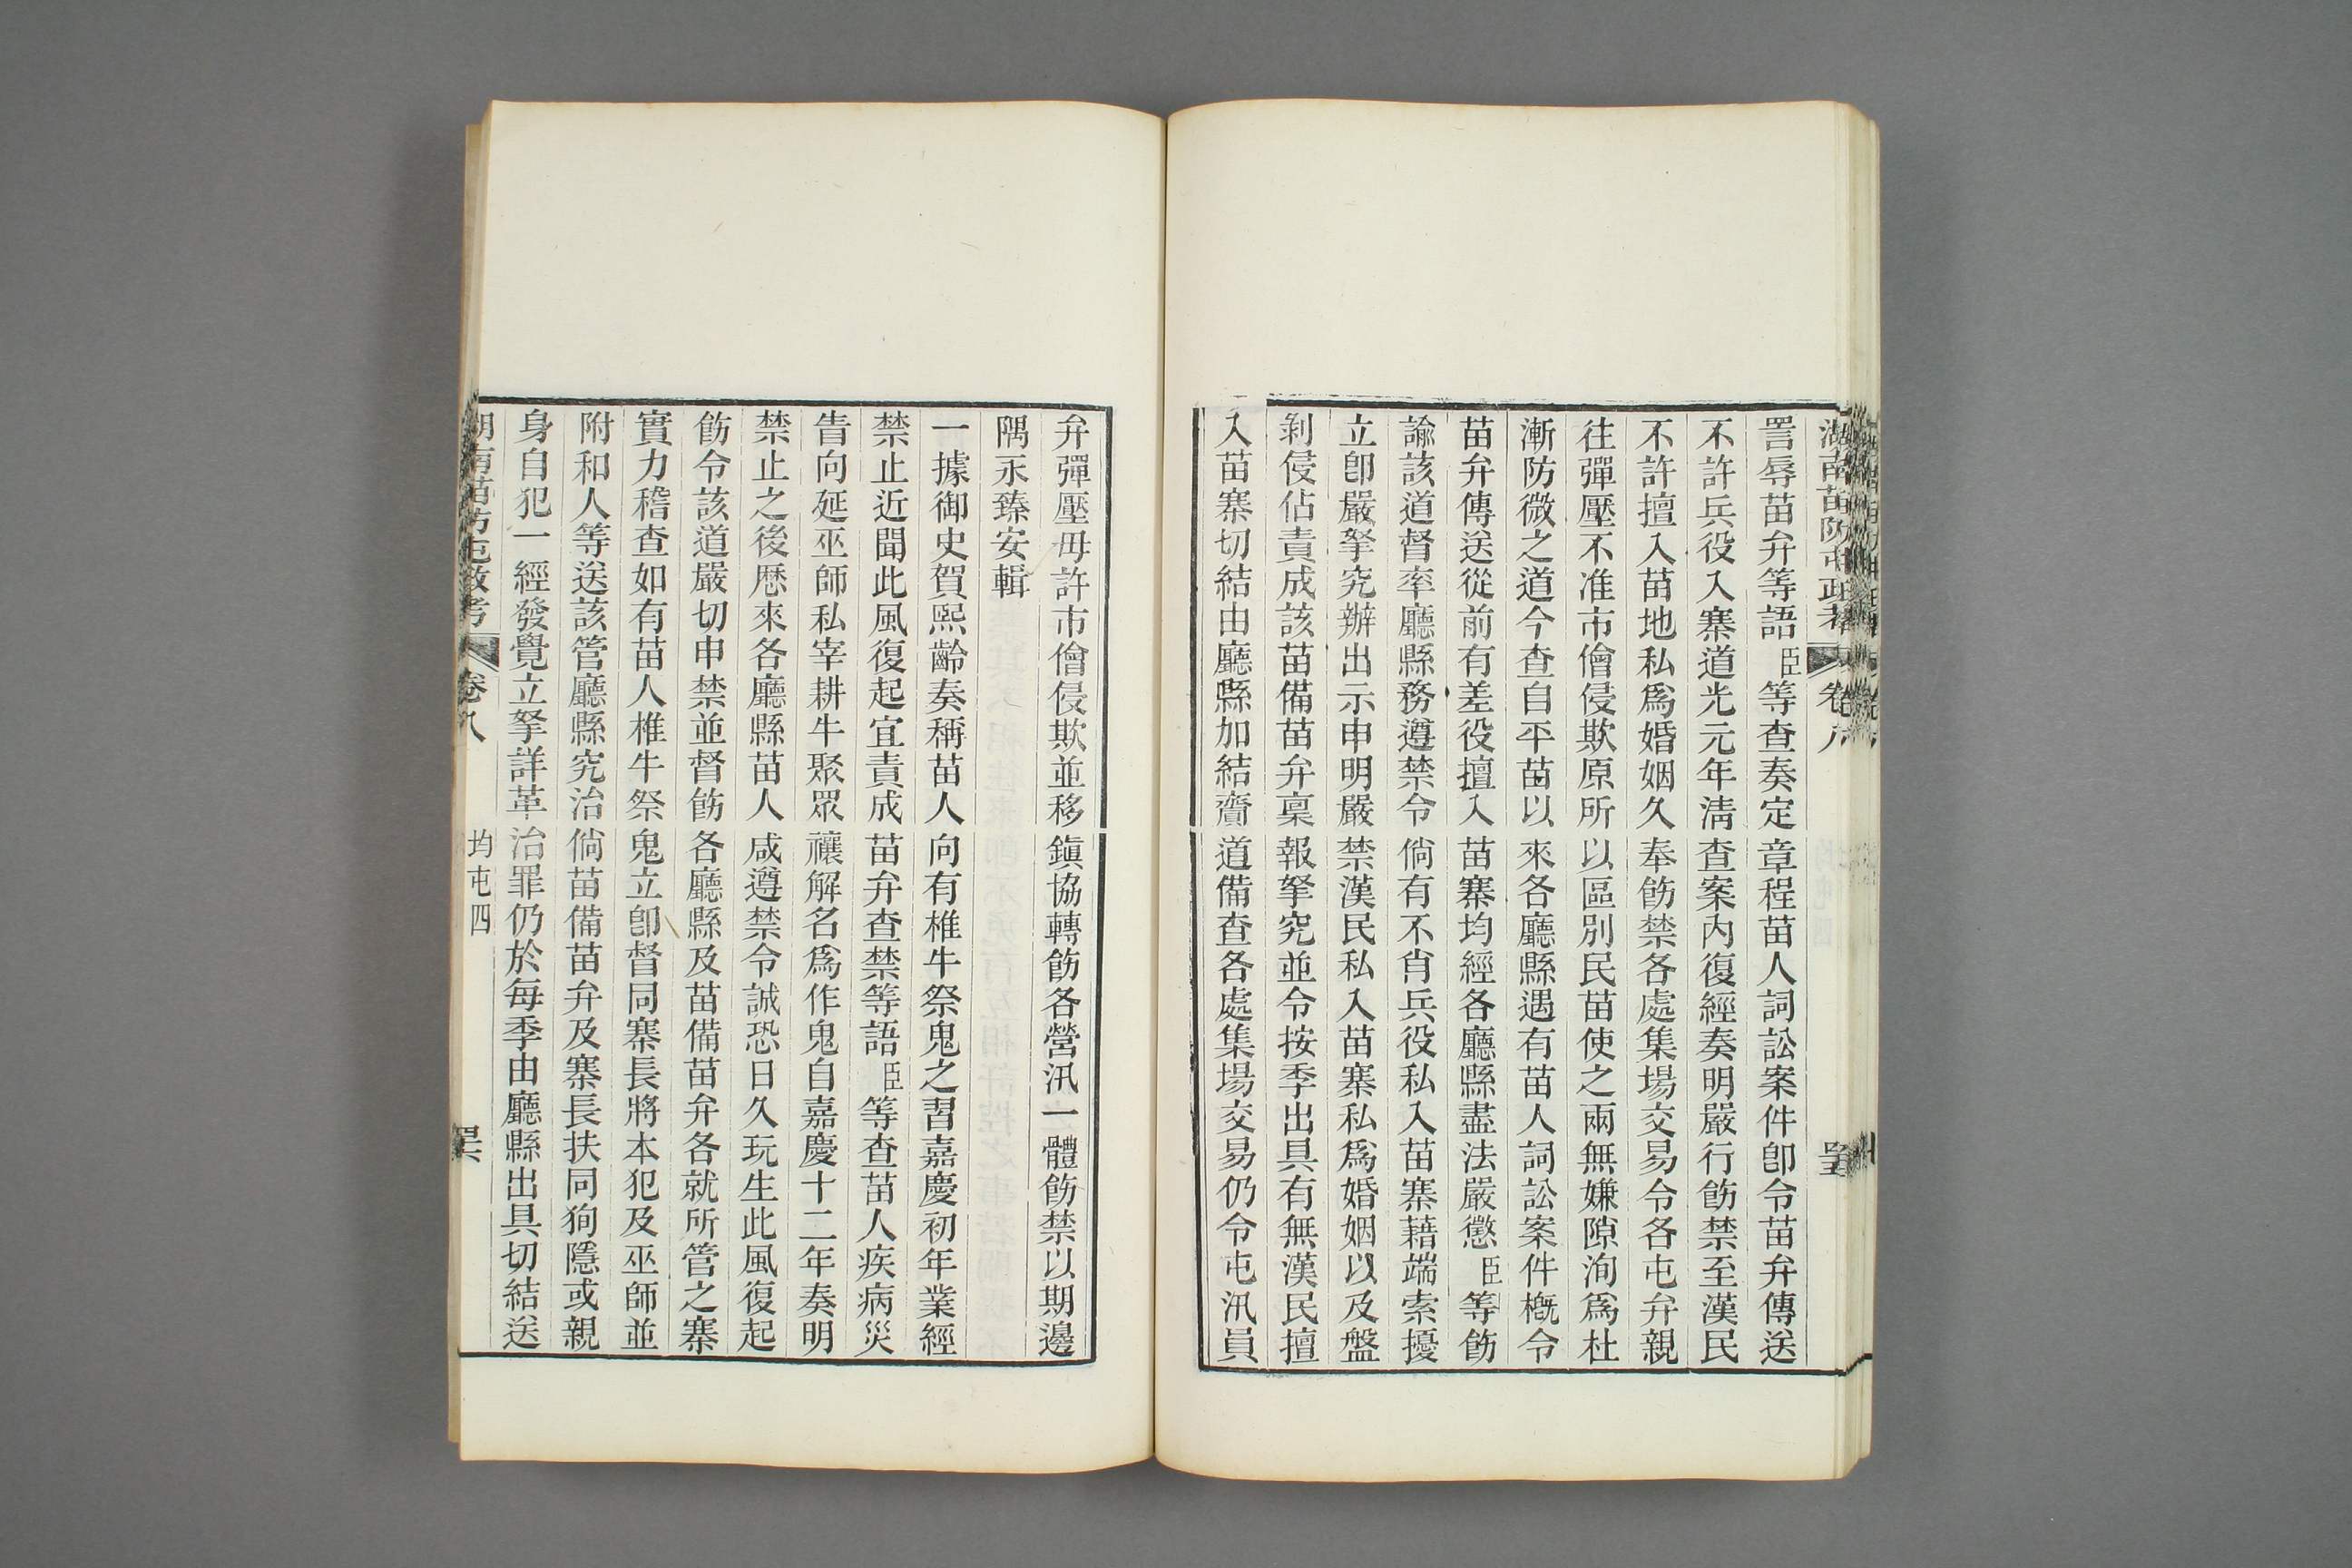 湖南苗防屯政考 卷八
詈辱苗弁等語臣等查奏定章程苗人詞訟案件卽令苗弁傳送
不許兵役入寨道光元年淸查案內復經奏明嚴行飭禁至漢民
不許擅入苗地私爲婚姻久奉飭禁各處集場交易令各屯弁親
往彈壓不准市儈侵欺原所以區別民苗使之兩無嫌隙洵爲杜
漸防微之道今查自平苗以來各廳縣遇有苗人詞訟案件槪令
苗弁傳送從前有差役擅入苗寨均經各廳縣盡法嚴懲臣等飭
諭該道督率廳縣務遵禁令倘有不肖兵役私入苗寨藉端索擾
立卽嚴拏究辦出示申明嚴禁漢民私入苗寨私爲婚姻以及盤
剝侵佔責成該苗備苗弁稟報拏究並令按季出具有無漢民擅
入苗寨切結由廳縣加結齎道備查各處集場交易仍令屯汛員
弁彈壓毋許市儈侵欺並移鎭協轉飭各營汛一體飭禁以期邊
隅永臻安輯
一據御史賀熙齡奏稱苗人向有椎牛祭鬼之習嘉慶初年業經
禁止近聞此風復起宜責成苗弁查禁等語臣等查苗人疾病災
眚向延巫師私宰耕牛聚眾禳解名爲作鬼自嘉慶十二年奏明
禁止之後歷來各廳縣苗人咸遵禁令誠恐日久玩生此風復起
飭令該道嚴切申禁並督飭各廳縣及苗備苗弁各就所管之寨
實力稽查如有苗人椎牛祭鬼立卽督同寨長將本犯及巫師並
附和人等送該管廳縣究治倘苗備苗弁及寨長扶同狥隱或親
身自犯一經發覺立拏詳革治罪仍於每季由廳縣出具切結送
湖南苗防屯政考 卷八 均屯四